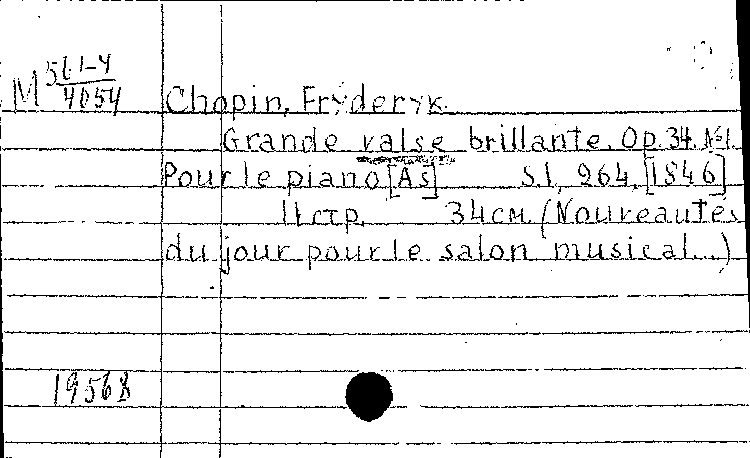 М 561-4/4054
Chopin, Fryderyk.
Grande valse brillante. Op. 34. №1.
Pour le piano [As] S.l., 964, [1846]
11 стр. 34 см. (Nouveautés
du jour pour le salon musical...)
19568